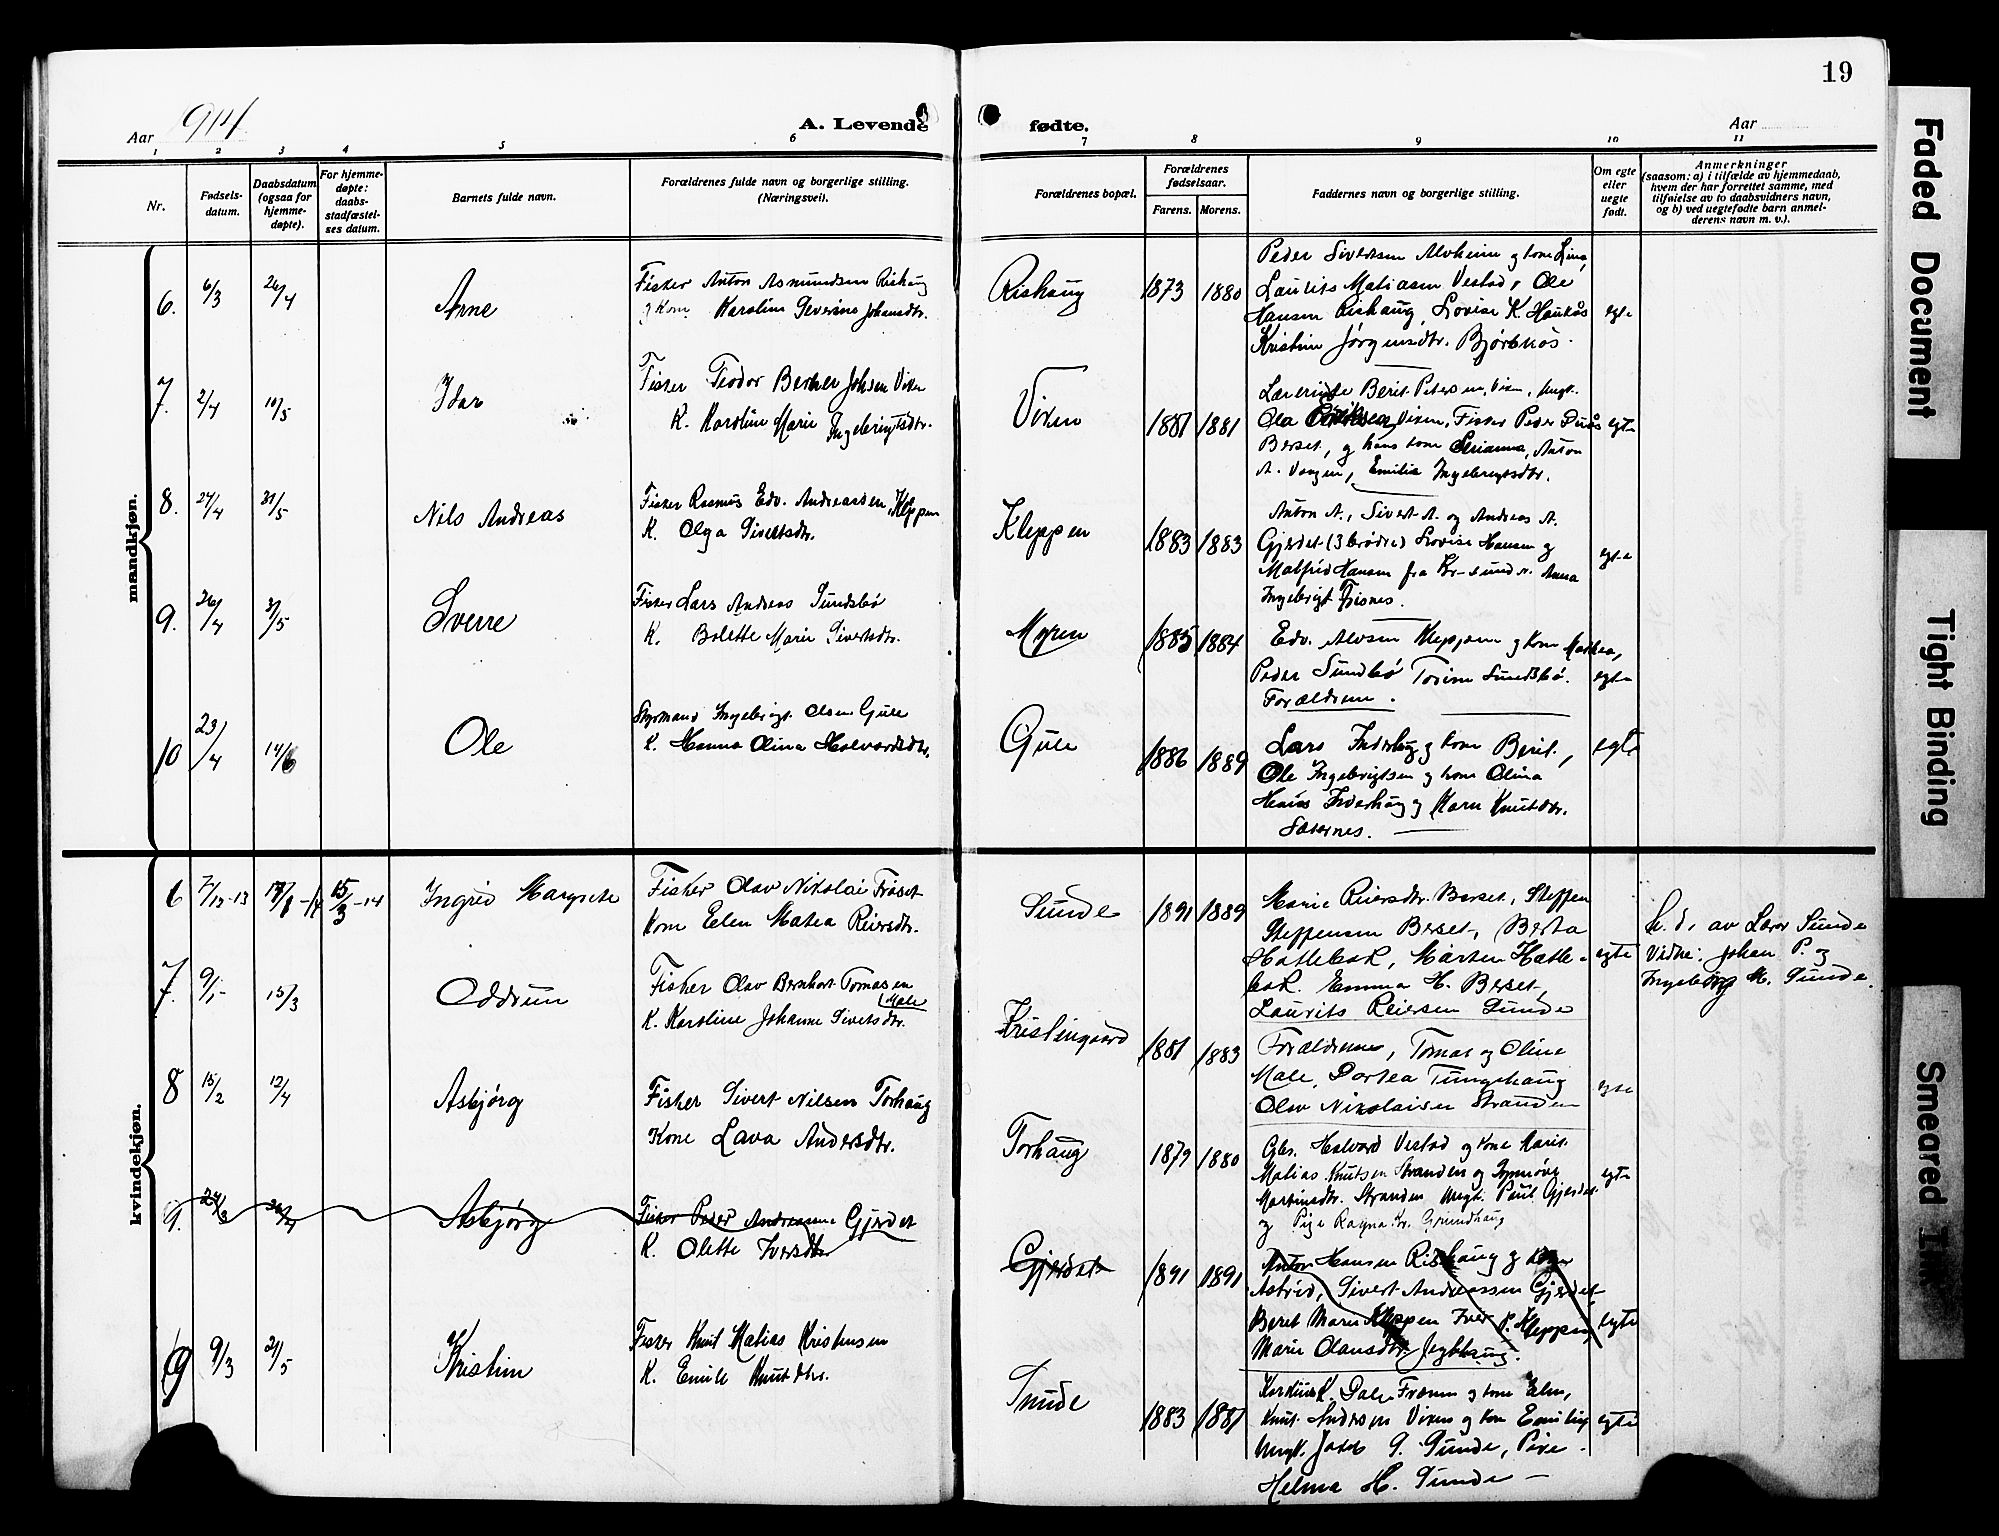 19
Aar 1914
A. Levende fødte.
Aar
1 2 3 4 5 6 7 8 9 10 11
Nr.
Fødsels-
datum.
Daabsdatum
(ogsaa for
hjemme-
døpte).
For hjemme-
døpte:
daabs-
stadfæstel-
ses datum.
Barnets fulde navn.
Forældrenes fulde navn og borgerlige stilling.
(Næringsvei).
Forældrenes bopæl.
Forældrenes
fødselsaar.
Farens. Morens.
Faddernes navn og borgerlige stilling.
Om egte
eller
uegte
født.
Anmerkninger
(saasom: a) i tilfælde av hjemmedaab,
hvem der har forrettet samme, med
tilføielse av to daabsvidners navn,
og b) ved uegtefødte barn anmel-
derens navn m. v.).
mandkjøn.
6. 6/3 26/4 Arne
Fisker Anton Asmundsen Rishaug
g Kone Karoline Severine Johansdtr.
Rishaug 1873 1880
Peder Sivertsen Alvheim og kone Lina,
Laurits Matiasen Vestad, Ole
Hansen Rishaug, Lovise K. Haukås
Kristine Jørgensdtr. Bjørknes.
egte
7. 2/4 10/5 Idar
Fisker Teodor Berner Johsen Viken
K. Karoline Marie Ingebrigtsdtr.
Viken 1881 1881
Lærerinde Berit Petersen, Viken, Ungk.
Ola Viken, Fisker Peder
Berset, og hans kone Anton
A. Vaagen, Emilie Ingebrigtsdtr.
egte
8. 24/4 31/5 Nils Andreas
Fisker Rasmus Edv. Andreassen, Kleppen
K. Olga Sivertsdtr.
Kleppen 1883 1883
Anton A., Sivert A. og Andreas A.
Gjerdet (3 brødre) Lovise Hansen og
Malfrid Hansen fra Kr-sund n. Anna
Ingebrigt
egte
9. 26/4 31/5 Sverre
Fisker Lars Andreas Sundsbø
K. Bolette Marie Sivertsdtr.
Myren 1885 1884
Edv. Alvsen Kleppen og kone Mathea,
Peder Sundsbø Torine Sundsbø.
Forældrene.
egte
10 23/4 14/6 Ole
Styrmand Ingebrigt Olsen Gule
K. Hanna Olina Halvardsdtr.
Gule 1886 1889
Lars Inderhaug og kone Berit,
Ole Ingebrigtsen og kone Olina
Hans Inderhaug og Karen Knutsdtr.
Sæternes.
egte
kvindekjøn.
6 7/12-13 -14 15/3-14 Ingrid Margrete
Fisker Olav Nikolai Frøset
Kone Elen Matea Reiersdtr.
Sunde 1891 1889
Marie Reiersdtr. Berset, Steffen
Steffensen Berset, Berta
Hatlebak, Marten Hatle-
bak. Emma H. Berset,
Laurits Reiersen Sunde
egte
h.d. av Lærer Sunde
Vidne: Johan P. og
Ingeborg M. Sunde.
7. 9/1 15/3 Oddrun
Fisker Olav Bernhart Tomasen
Male
K. Karoline Johanne Sivertsdtr.
Kristingaard 1881 1883
Forældrene, Tomas og Oline
Male, Dortea Tungehaug
Olav Nikolaisen Stranden
egte
8 15/2 12/4 Asbjørg
Fisker Sivert Nilsen Torhaug
Kone Lava Andersdtr.
Torhaug 1879 1880
Gbr. Halvard Vestad og kone Marit
Matias Knutsen Stranden og Synnøve
Martinsdtr. Stranden Ungk. Paul Gjerdet
og Pige Ragna Kr. Grundhaug
egte
9. Asbjørg
Fisker Peder Andreassen Gjerdet
K. Olette Iversdtr.
Gjerdet 1891 1891
Anton Hansen Rishaug og Kone
Astrid, Sivert Andreassen Gjerdet
Beret Marie Kleppen Iver P. Kleppen
Marie Olausdtr.
egte
9 9/3 21/5 Kristine
Fisker Knut Matias Kristensen
K. Emile Knutsdtr.
Sunde 1883 1881
K. Dale Frænen og kone Elen,
Knut Andersen Viken og kone Emilie
Ungk. Jakob G. Sunde, Pike
Helma H. Sunde
egte
Faded Document
Tight Binding
Smeared Ink